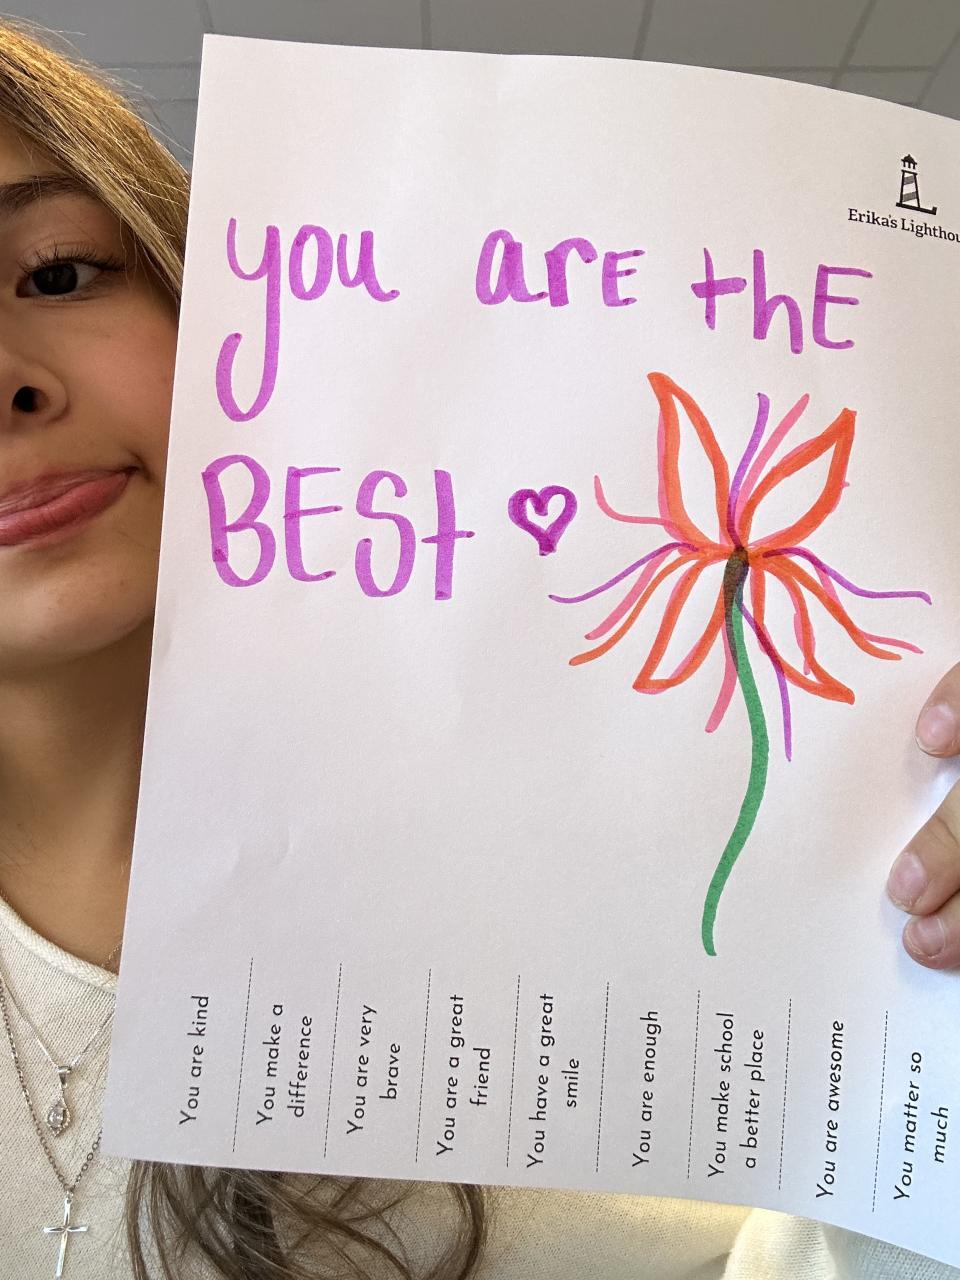 Erika's
you are the
BEST
You are kind
You make a
difference
You are very
brave
You are a great
friend
You have a great
smile
You are enough
You make school
a better place
You are awesome
You matter so
much